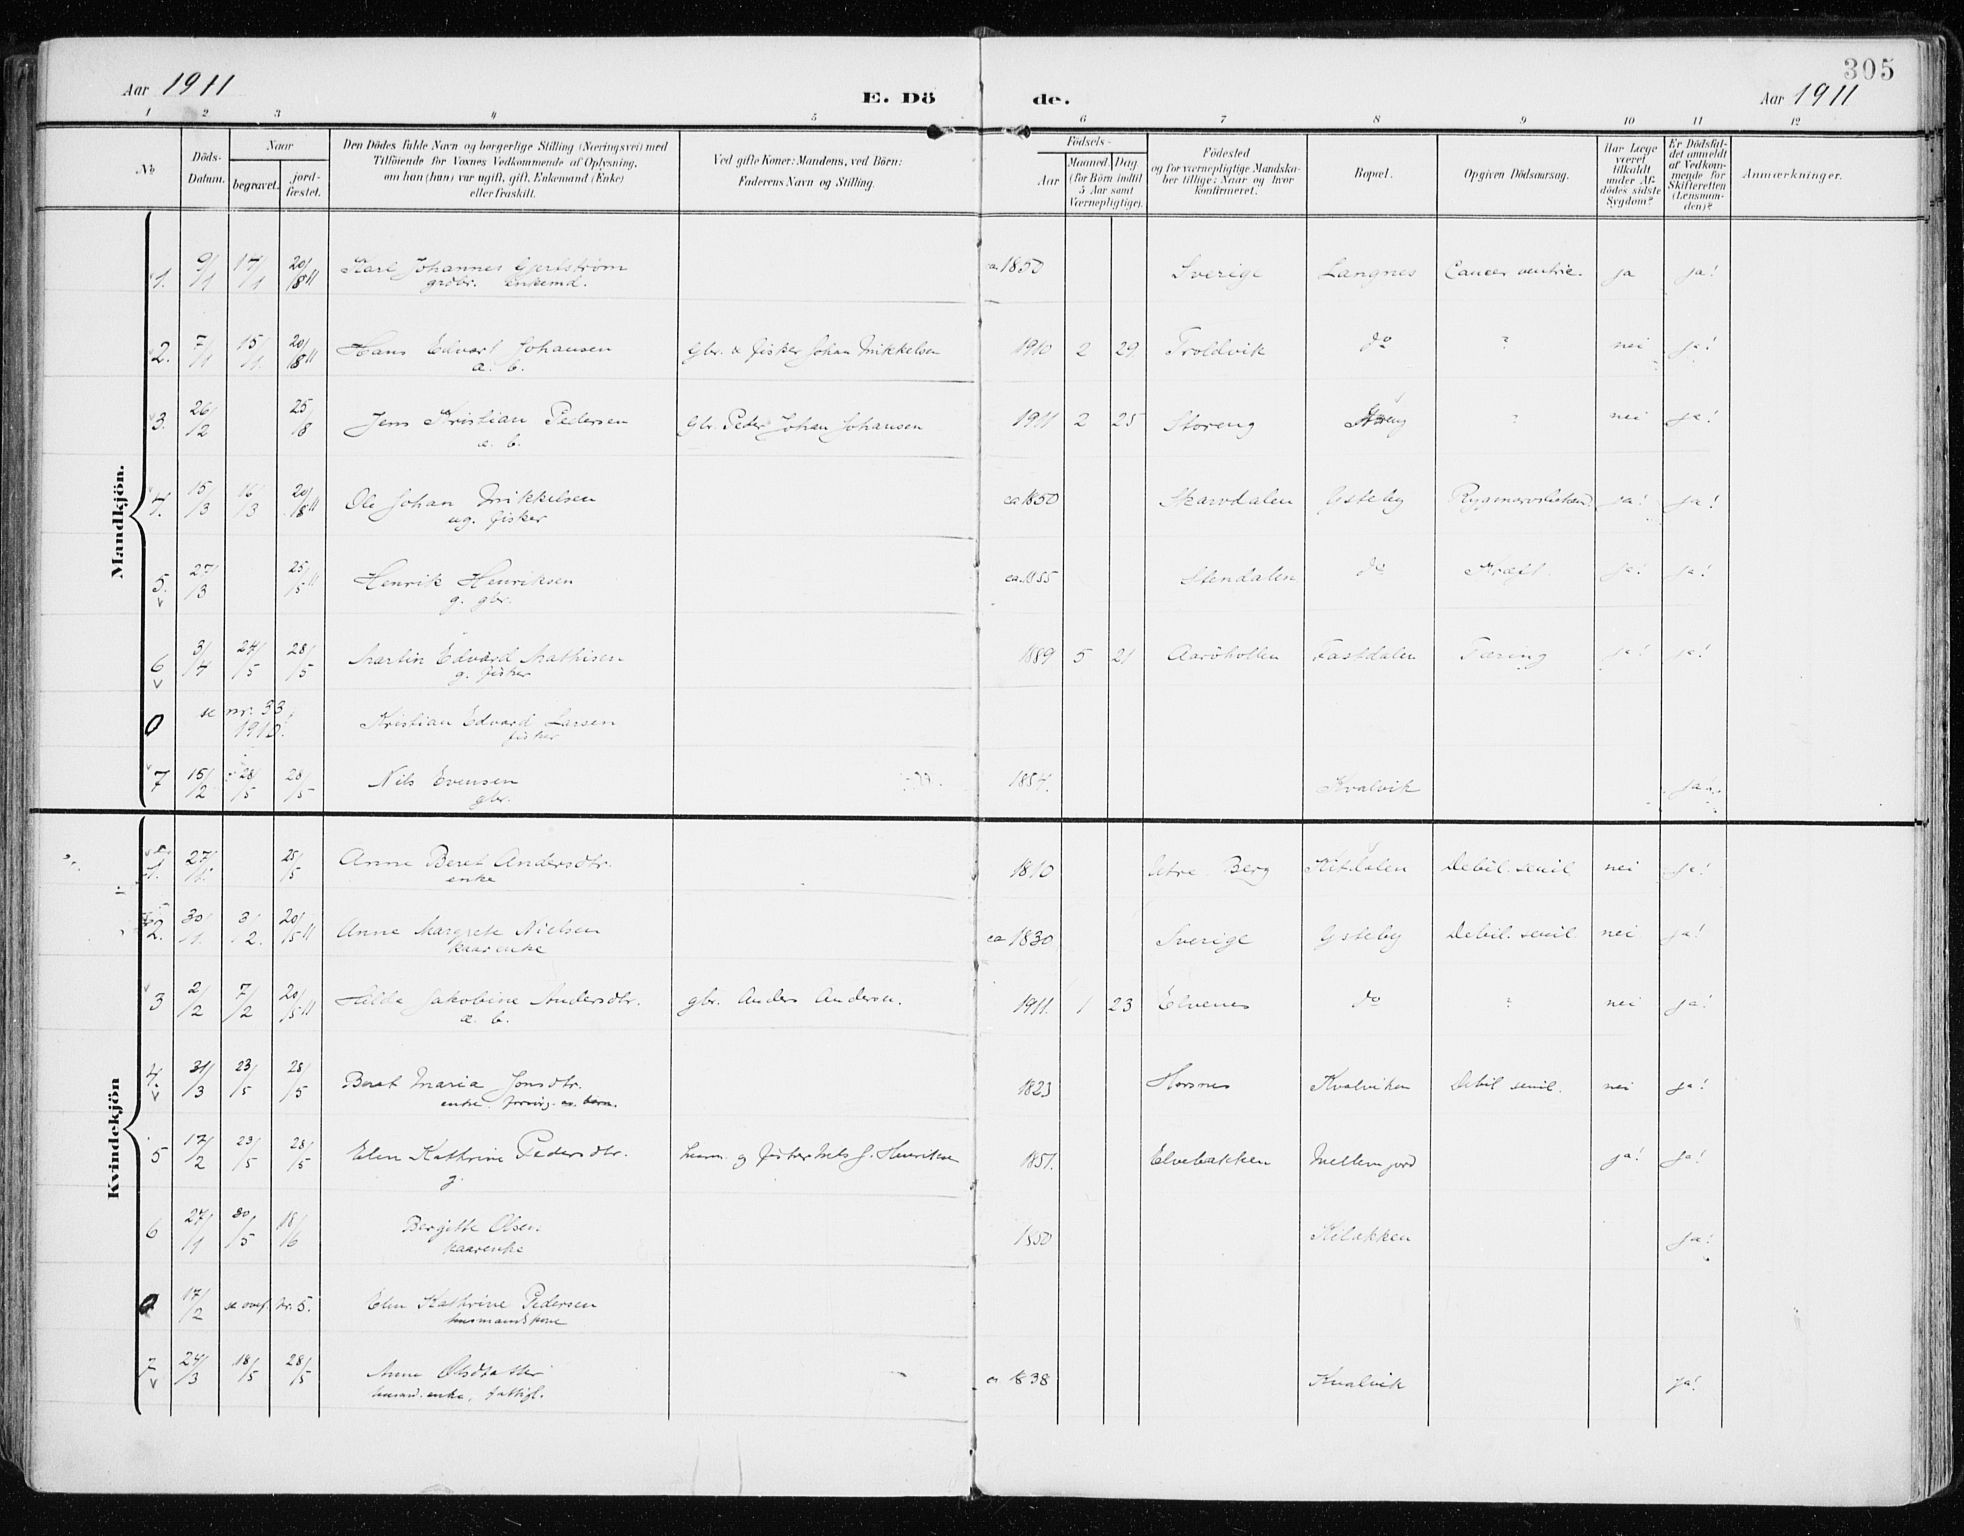 305
Aar 1911
E. Dö de.
Aar 1911
1 2 3 4 5 6 7 8 9 10 11 12
No
Döds-Datum.
Naar
begravet.
jord-fæstet.
Den Dödes fulde Navn og borgerlige Stilling (Næringsvei) med
Tilföiende for Voxnes Vedkommende af Oplysning,
om han (hun) var ugift, gift, Enkemand (Enke)
eller fraskilt.
Ved gifte Koner: Mandens, ved Börn:
Faderens Navn og Stilling.
Födsels-
Aar
Maaned. Dag.
(for Börn indtil
5 Aar samt
Værnepligtige).
Födested
og for værnepligtige Mandska-
ber tillige: Naar og hvor
konfirmeret.
Bopæl.
Opgiven Dödsaarsag.
Har Læge
været
tilkaldt
under Af-
dödes sidste
Sygdom?
Er Dödsfal-
det anmeldt
af Vedkom-
mende for
Skifteretten
(Lensman-
den)?
Anmærkninger.
Mandkjön.
1. 9/1 17/1 20/8 11 Karl Johannes Gjertström ca 1850 Sverige Langnes Cancer ventric. ja ja!
grdbr. enkemd.
2. 7/1 15/1 20/8 11 Hans Edvart Johansen Gbr. & fisker Johan Mikkelsen 1910 2 29 Troldvik do ? nei ja!
æ. b.
3. 26/2 25/8 Jens Kristian Pedersen Gbr. Peder Johan Johansen 1911 2 25 Storeng ? nei ja!
æ. b.
4. 15/3 16/3 20/8 11 Ole Johan Mikkelsen ca 1850 Skarvdalen Gsteby ja! ja!
ug. fisker
5. 27/3 25/5 11 Henrik Henriksen ca. 1855 Stendalen do Kræft. ja! ja!
g. gbr.
6 3/4 24/5 28/5 Martin Edvard Mathisen 1889 5 21 Aaröholten Fastdalen Tæring ja! ja!
g. fisker
0 se nr. 33 Kristian Edvard Larsen
1910! fisker
7 15/2 28/5 28/5 Nils Evensen 1854. Kvalvik ja!
gbr.
Kvindekjön
1. 27/1 25/5 Anne Beret Andersdtr. 1810 Ytre Berg Kitdalen Debil. senil nei ja!
enke
2. 30/1 3/2 20/5 11 Anne Margrete Nielsen ca 1830 Sverige Gsteby Debil. senil nei ja!
kaarenke
3 2/2 7/2 20/5 11 Hilda Jakobine Andersdtr. gbr. Anders Andersen. 1911. 1 23 Elvenes do ? nei ja!
æ. b.
4. 31/3 23/5 28/5 Beret Maria Jonsdtr. 1823 Horsnes Kvalviken Debil senil. nei ja!
enke.
5 17/2 23/5 28/5 Elen Kathrine Pedersdtr. husm. g fisker Nils J. Henriksen 1851. Elvebakken Mellemjord ja! ja!
g.
6 27/1 30/5 18/6 Bergitte Olsen. 1850 ja!
kaarenke
0 17/2 se ovf. Nr. 5. Elen Kathrine Pedersen
husmandskone
7 24/3 18/5 28/5 Anne Olsdatter ca 1838 Kvalvik ja!
husmd. enke, fattigl.